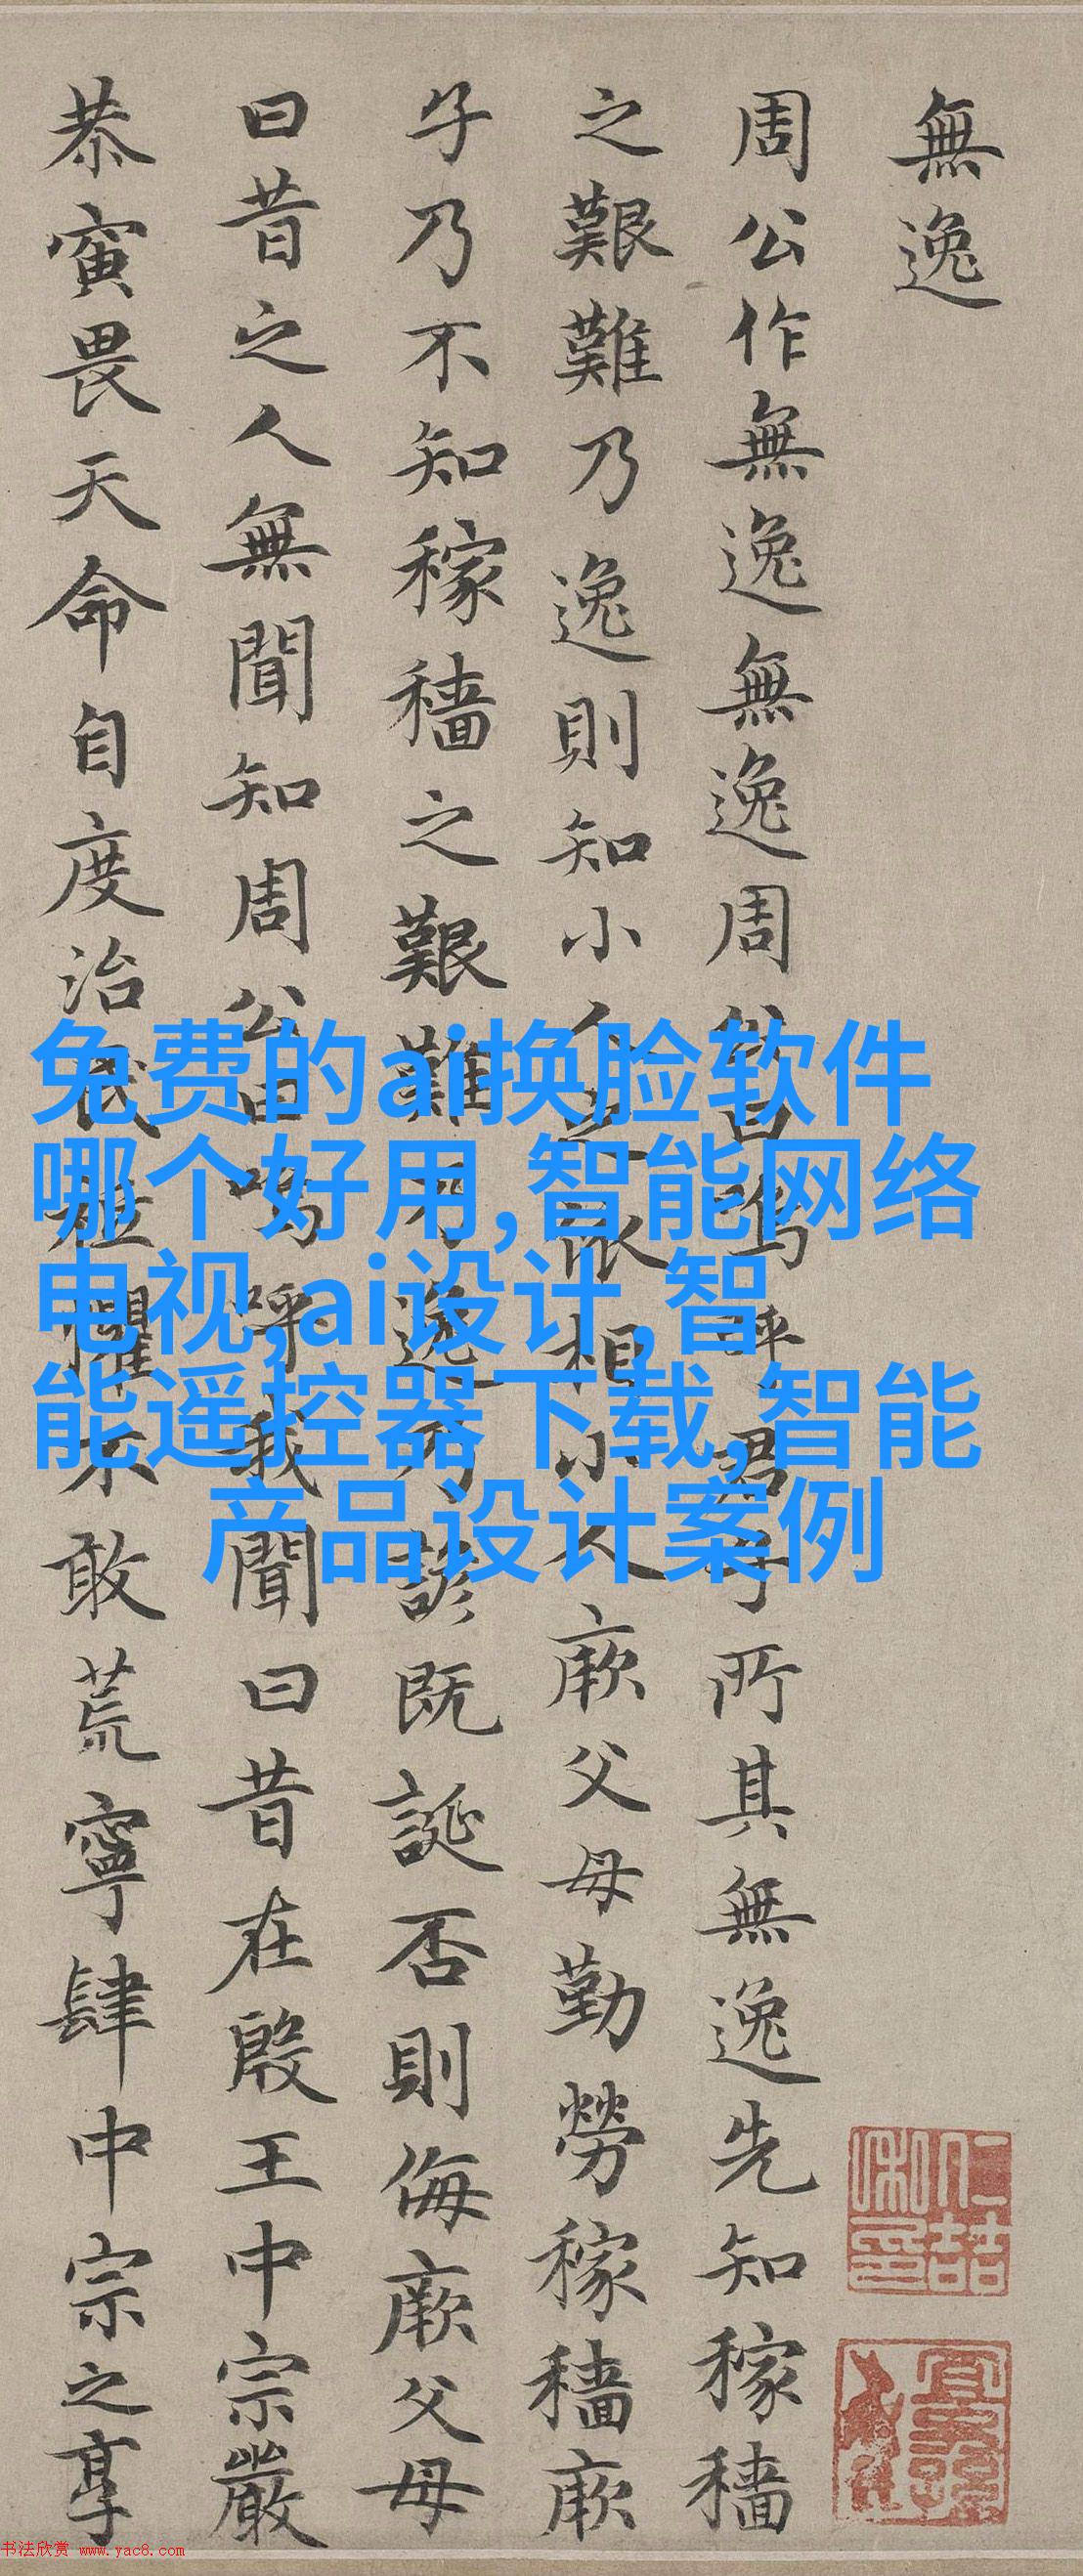 無逸
周公作無逸無逸周公曰嗚呼君子所其無逸先知稼穡
之艱難乃逸則知小人之依相小人厥父母勤勞稼穡厥
子乃不知稼穡之艱難乃逸乃諺既誕否則侮厥父母
曰昔之人無聞知周公曰嗚呼我聞曰昔在殷王中宗嚴
恭寅畏天命自度治民祗懼不敢荒寧肆中宗之享
免费的ai换脸软件
哪个好用,智能网络
电视,ai设计,智
能遥控器下载,智能
产品设计案例
书法欣赏 www.yac8.com